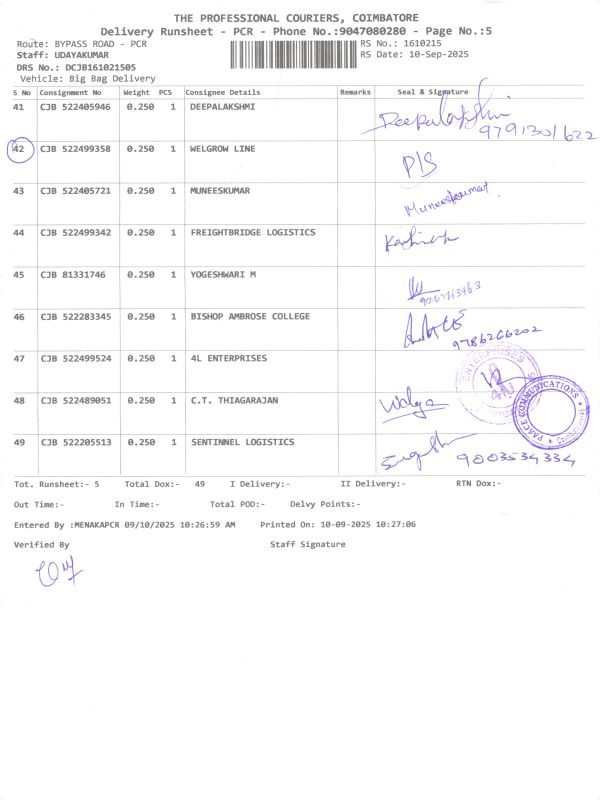 THE PROFESSIONAL COURIERS, COIMBATORE
Delivery Runsheet - PCR - Phone No.:9047080280 - Page No.:5
Route: BYPASS ROAD - PCR RS No.: 1610215
Staff: UDAYAKUMAR RS Date: 10-Sep-2025
DRS No.: DCJB161021505
Vehicle: Big Bag Delivery
S No Consignment No Weight PCS Consignee Details Remarks Seal & Signature
41 CJB 522405946 0.250 1 DEEPALAKSHMI Deepalakshmi
9791301622
42 CJB 522499358 WELGROW LINE 0.250 1 P/S
43 CJB 522405721 0.250 1 MUNEESKUMAR Muneeskumar
44 CJB 522499342 0.250 1 FREIGHTBRIDGE LOGISTICS
45 CJB 81331746 0.250 1 YOGESHWARI M
46 CJB 522283345 0.250 1 BISHOP AMBROSE COLLEGE
9786266202
47 CJB 522499524 0.250 1 4L ENTERPRISES ENTERPRISES
48 CJB 522489051 0.250 1 C.T. THIAGARAJAN PAACE COMMUNICATIONS
49 CJB 522205513 0.250 1 SENTINNEL LOGISTICS 9003534334
Tot. Runsheet:- 5 Total Dox:- 49 I Delivery:- II Delivery:- RTN Dox:-
Out Time:- In Time:- Total POD:- Delvy Points:-
Entered By :MENAKAPCR 09/10/2025 10:26:59 AM Printed On: 10-09-2025 10:27:06
Verified By Staff Signature